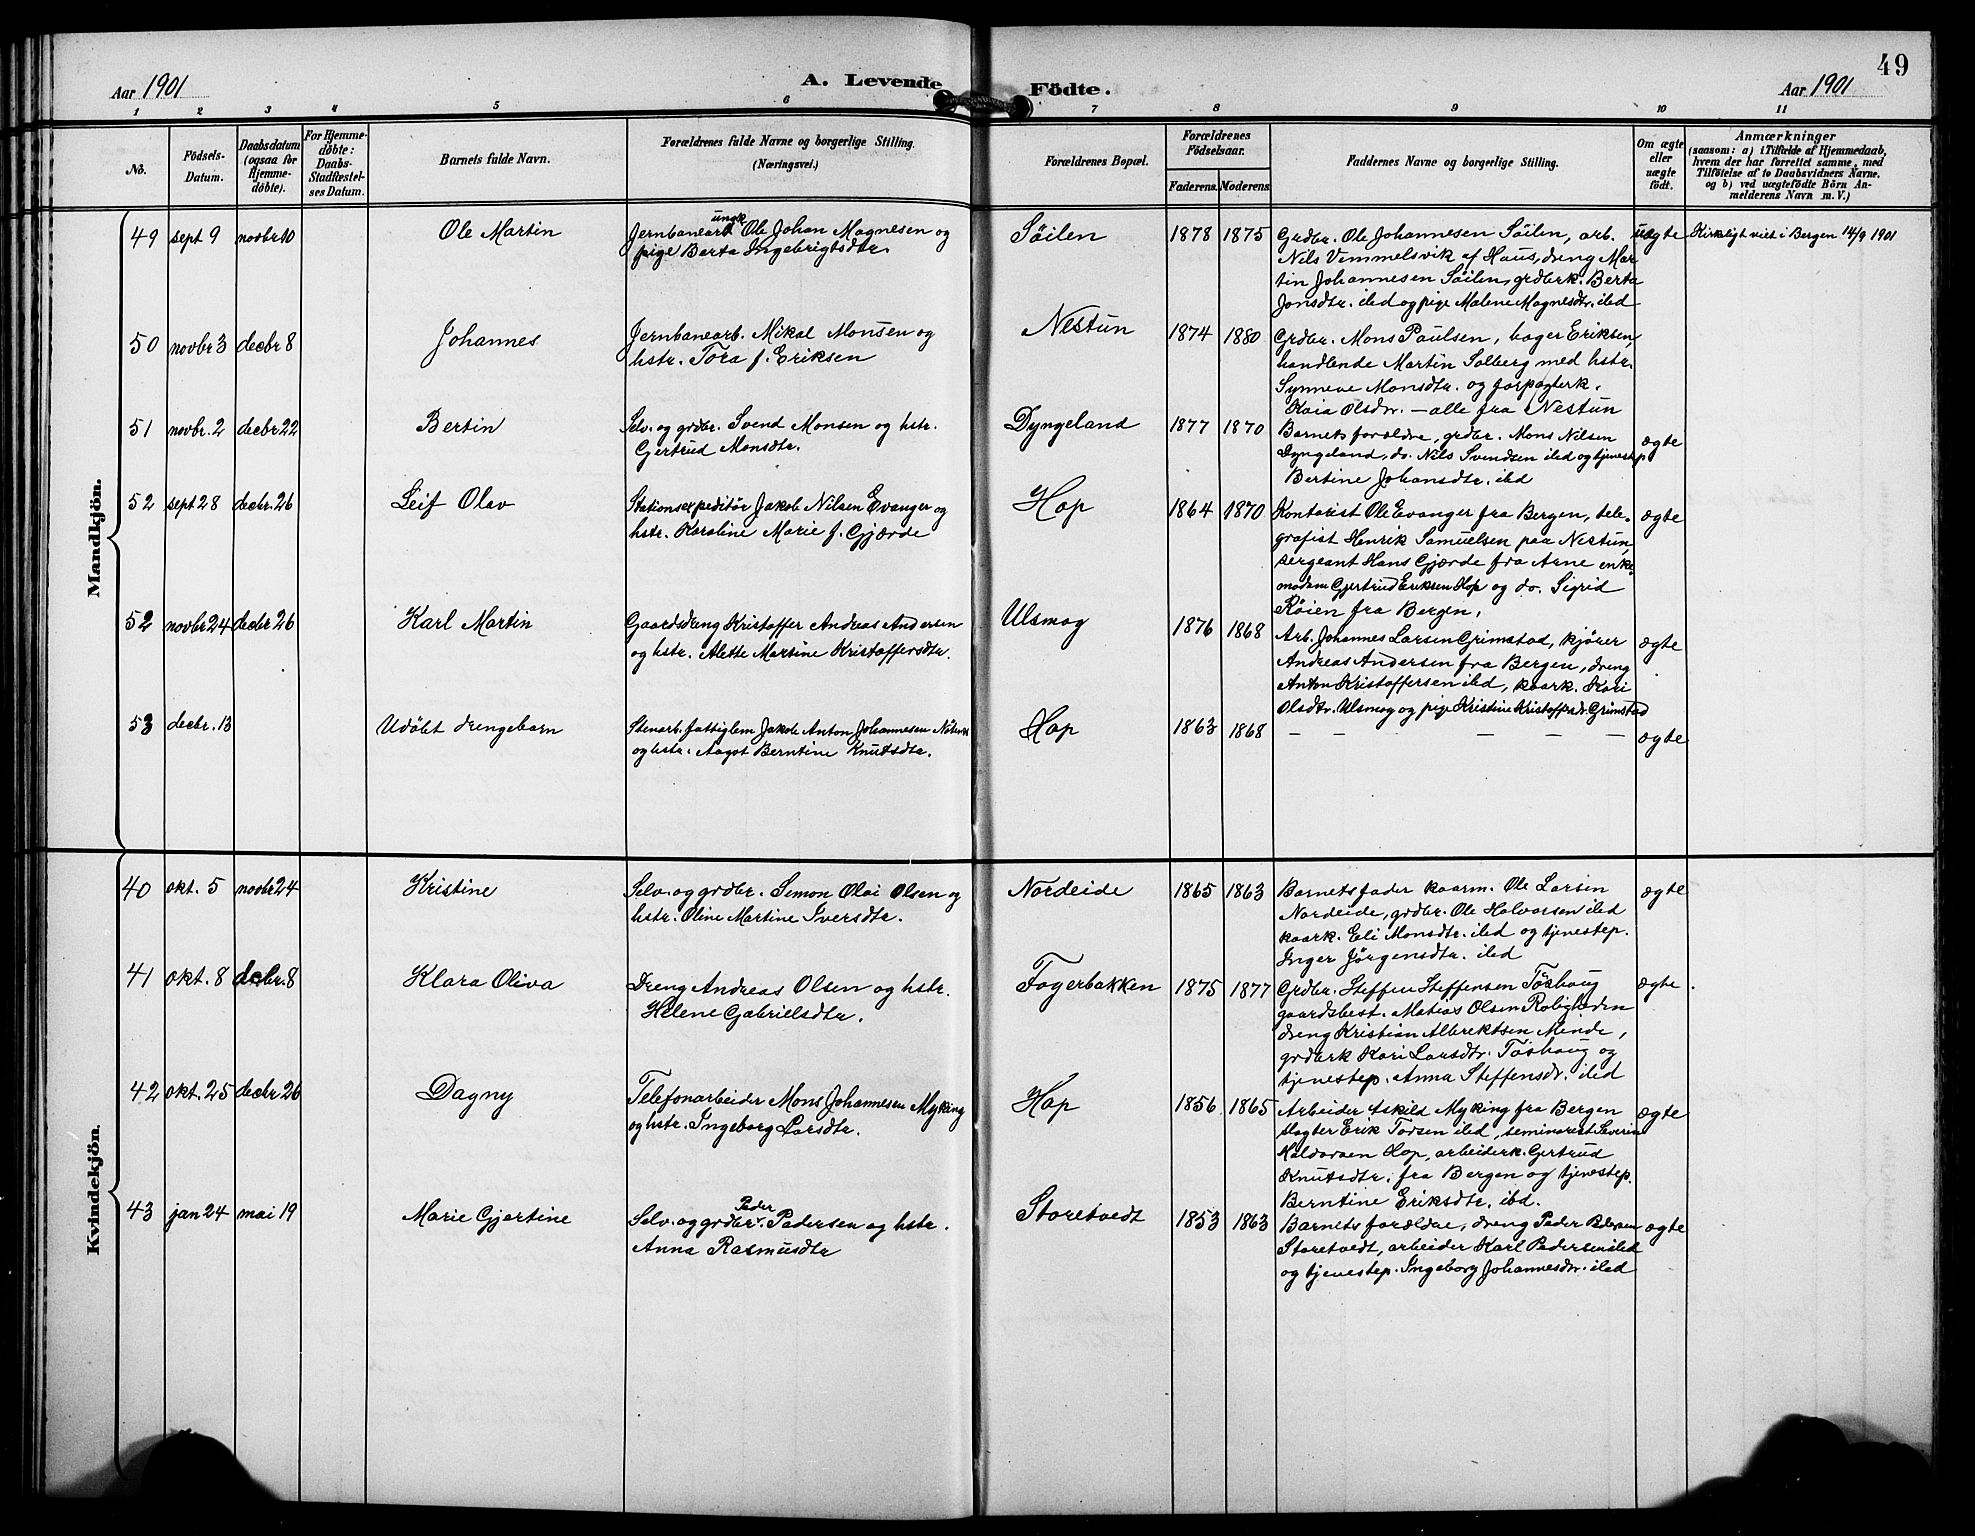 49
Aar 1901
A. Levende Födte.
Aar 1901
1 2 3 4 5 6 7 8 9 10 11
No.
Födsels-
Datum.
Daabsdatum
(ogsaa for
Hjemme-
döbte).
For Hjemme-
döbte:
Daabs-
Stadfæstel-
ses Datum.
Barnets fulde Navn.
Forældrenes fulde Navne og borgerlige Stilling.
(Næringsvei.)
Forældrenes Bopæl.
Forældrenes
Födselsaar.
Faderens. Moderens.
Faddernes Navne og borgerlige Stilling.
Om ægte
eller
uægte
födt.
Anmærkninger
(saasom: a) i Tilfælde af Hjemmedaab,
hvem der har forrettet samme, med
Tilföielse af to Daabsvidners Navne.
og b) ved uægtefödte Börn An-
melderens Navn m. V.)
Mandkjön.
49 sept 9 novbr 10 Ole Martin
ungk
Jernbanearb Ole Johan Magnesen og
pige Berta Ingebrigtsdtr.
Söilen 1878 1875
Grdbr. Ole Johannesen Söilen, arb.
Nils Vemmelsvik af Haus, dreng Mar
tin Johannesen Söilen, grdbrk. Berta
Jonsdtr. ibd og pige Malene Magnesdtr. ibd
uægte Kirkeligt viet i Bergen 14/9 1901
50 novbr 3 decbr 8 Johannes
Jernbanearb. Mikal Monsen og
hstr. Tora f. Eriksen
Nestun 1874 1880
Grdbr. Mons Paulsen, bager Eriksen,
handlende Martin Solberg med hstr.
Synneve Monsdtr. og forpagterk.
Kaia Olsdtr. — alle fra Nestun
51 novbr. 2 decbr 22 Bertin
Selv. og grdbr. Svend Monsen og hstr.
Gjertrud Monsdtr.
Dyngeland 1877 1870
Barnets forældre, grdbr. Mons Nilsen
Dyngeland, do. Nils Svendsen ibd og tjenestep
Bertine Johansdtr. ibd
ægte
52 sept 28 decbr. 26 Leif Olav
Stationsexpeditör Jakob Nilsen Evanger og
hstr. Karoline Marie f. Gjærde
Hop 1864 1870
Kontorist Ole Evanger fra Bergen, tele-
grafist Henrik Samuelsen paa Nestun,
sergeant Hans Gjærde fra Arne enke-
madam Gjertrud Eriksen Hop og do. Sigrid
Röien fra Bergen.
ægte
52 novbr 24 decbr 26 Karl Martin
Gaardsdreng Kristoffer Andreas Andersen
og hstr. Alette Martine Kristoffersdtr.
Ulsmog 1876 1868
Arb. Johannes Larsen Grimstad, kjörer
Andreas Andersen fra Bergen, dreng
Anton Kristoffersen ibd, kaark. Kari
Olsdtr. Ulsmog og pige Kristine Kristoffersdtr. Grimstad
ægte
53 decbr. 13 Udöbt drengebarn
Stenarb. fattiglem Jakob Anton Johannesen
og hstr. Aagot Berntine Knutsdtr.
Hop 1863 1868
— — — — — —
ægte
Kvindekjön.
40 okt. 5 novbr 24 Kristine
Selv. og grdbr. Simon Olai Olsen og
hstr. Oline Martine Iversdtr.
Nordeide 1865 1863
Barnets fader kaarm. Ole Larsen
Nordeide, grdbr. Ole Halvorsen ibd
kaark. Eli Monsdtr. ibd og tjenestep.
Inger Jörgensdtr. ibd
ægte
41 okt. 8 decbr. 8 Klara Oliva
Dreng Andreas Olsen og hstr.
Helene Gabrielsdtr.
Fagerbakken 1875 1877
Grdbr. Steffen Steffensen Töshoug
gaardsbest. Matias Olsen Roligheden
dreng Kristian Albrektsen Minde,
grdbrk Kari Larsdtr. Töshoug og
tjenestep. Anna Steffensdtr. ibd
ægte.
42 okt. 25 decbr 26 Dagny
Telefonarbeider Mons Johannesen Myking
og hstr. Ingeborg Larsdtr.
Hop 1856 1865
Arbeider Askild Myking fra Bergen
slagter Erik Torsen ibd, seminarist Severin
Haldorsen Hop, arbeiderk. Gertrud
Knutsdtr. fra Bergen og tjenestep.
Berntine Eriksdtr. ibd.
ægte
43 jan 24 mai 19 Marie Gjertine
Peder
Selv. og grdbr. Pedersen og hstr.
Anna Rasmusdtr
Storetvedt 1853 1863
Barnets forældre, dreng Peder Pedersen
Storetvedt, arbeider Karl Pedersen ibd
og tjenestep. Ingeborg Johannesdtr. ibd
ægte